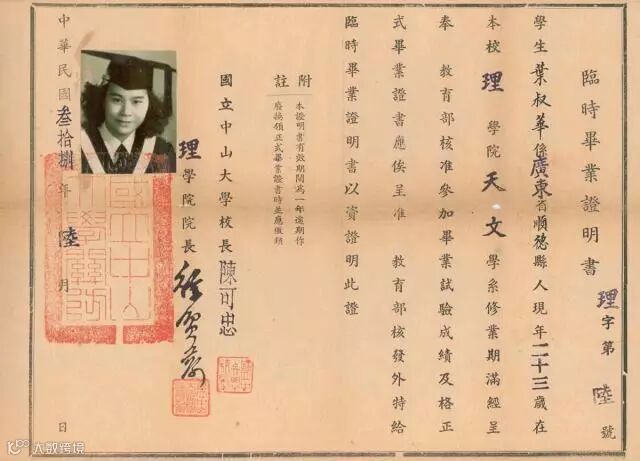 臨時畢業證明書
理字第陸號
學生葉叔華係廣東省順德縣人現年二十三歲在
本校理學院天文學系修業期滿經呈
奉教育部核准參加畢業試驗成績及格正
式畢業證書應俟呈准教育部核發外特給
臨時畢業證明書以資證明此證
附註
本證明書有效期間為一年逾期作
廢換領正式畢業證書時並應繳銷
國立中山大學校長陳可忠
理學院院長
中華民國叁拾捌年陸月日
大数跨境